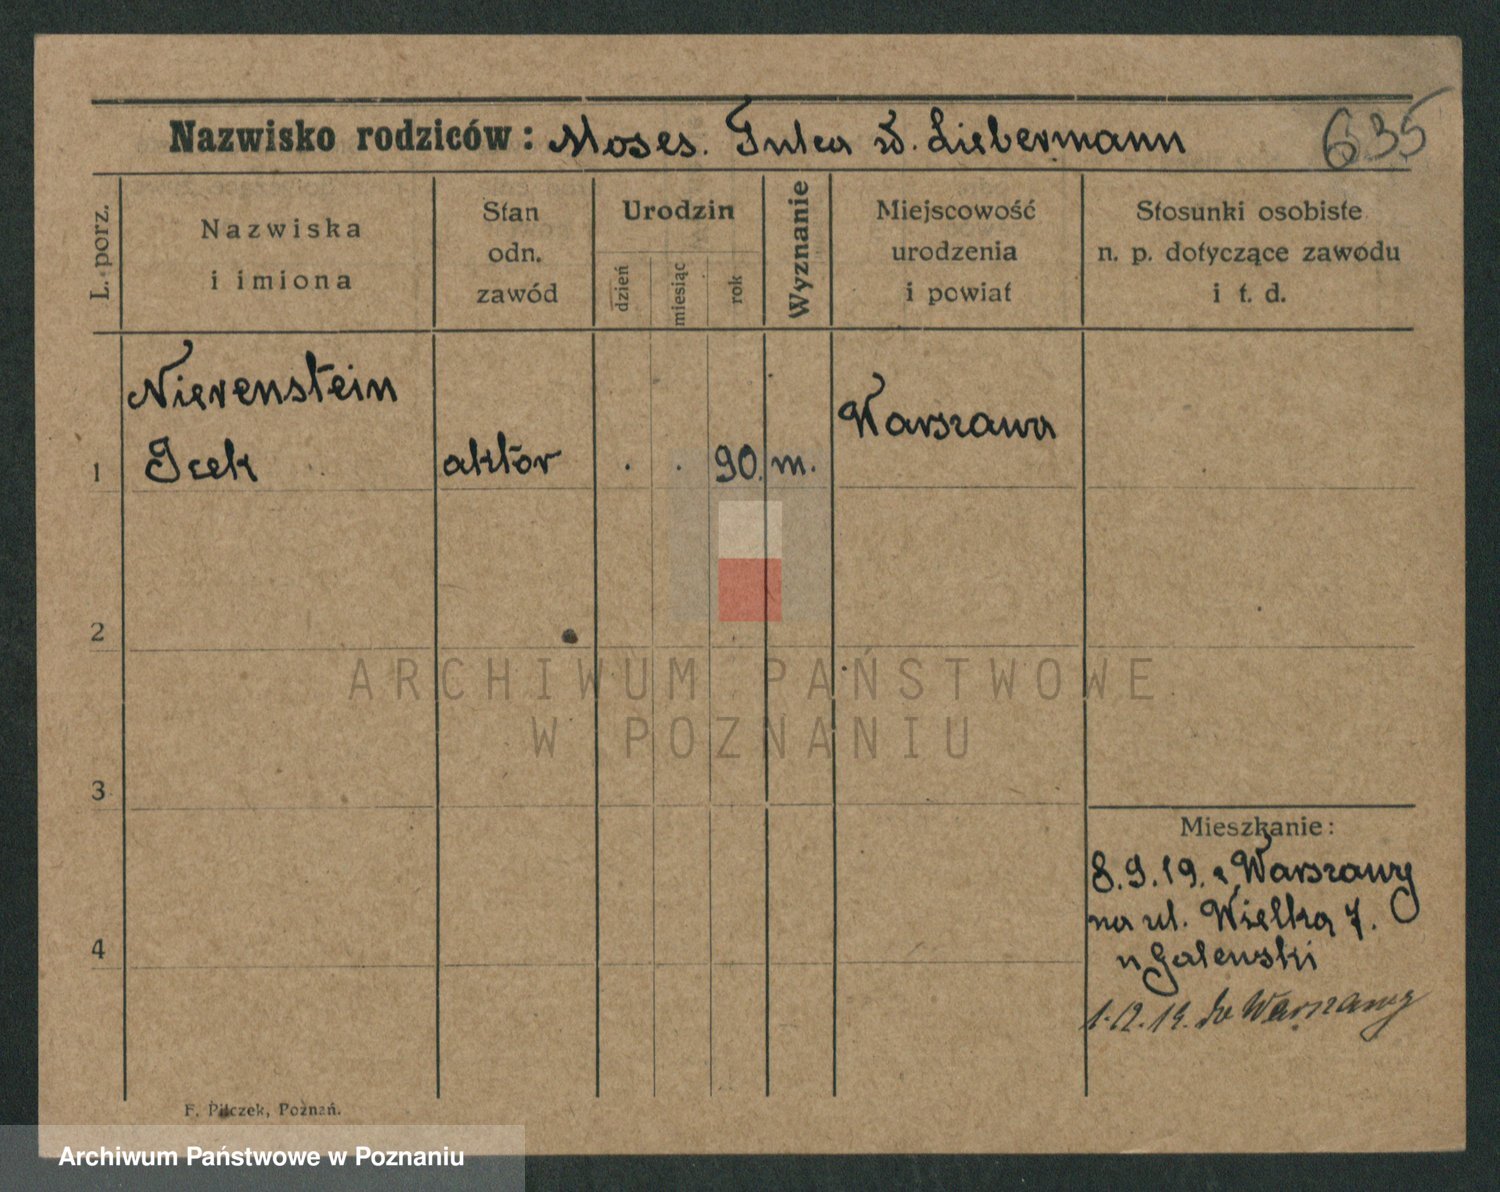 Nazwisko rodziców: Moses. Gutca w. Liebermann 635
L. porz.
Nazwiska
i imiona
Stan
odn.
zawód
Urodzin
dzień
miesiąc
rok
Wyznanie
Miejscowość
urodzenia
i powiat
Stosunki osobiste
n. p. dotyczące zawodu
i t. d.
Nierenstein
1 Icek aktor . . 90. m. Warszawa
2
ARCHIWUM PAŃSTWOWE
W POZNANIU
3
Mieszkanie:
8.9.19. z Warszawy
na ul. Wielka 7.
4
u Galewski
1.12.19. do Warszawy
F. Pilczek, Poznań.
Archiwum Państwowe w Poznaniu